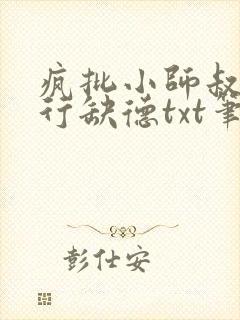 疯批小师叔
行缺德txt笔
彭仕安